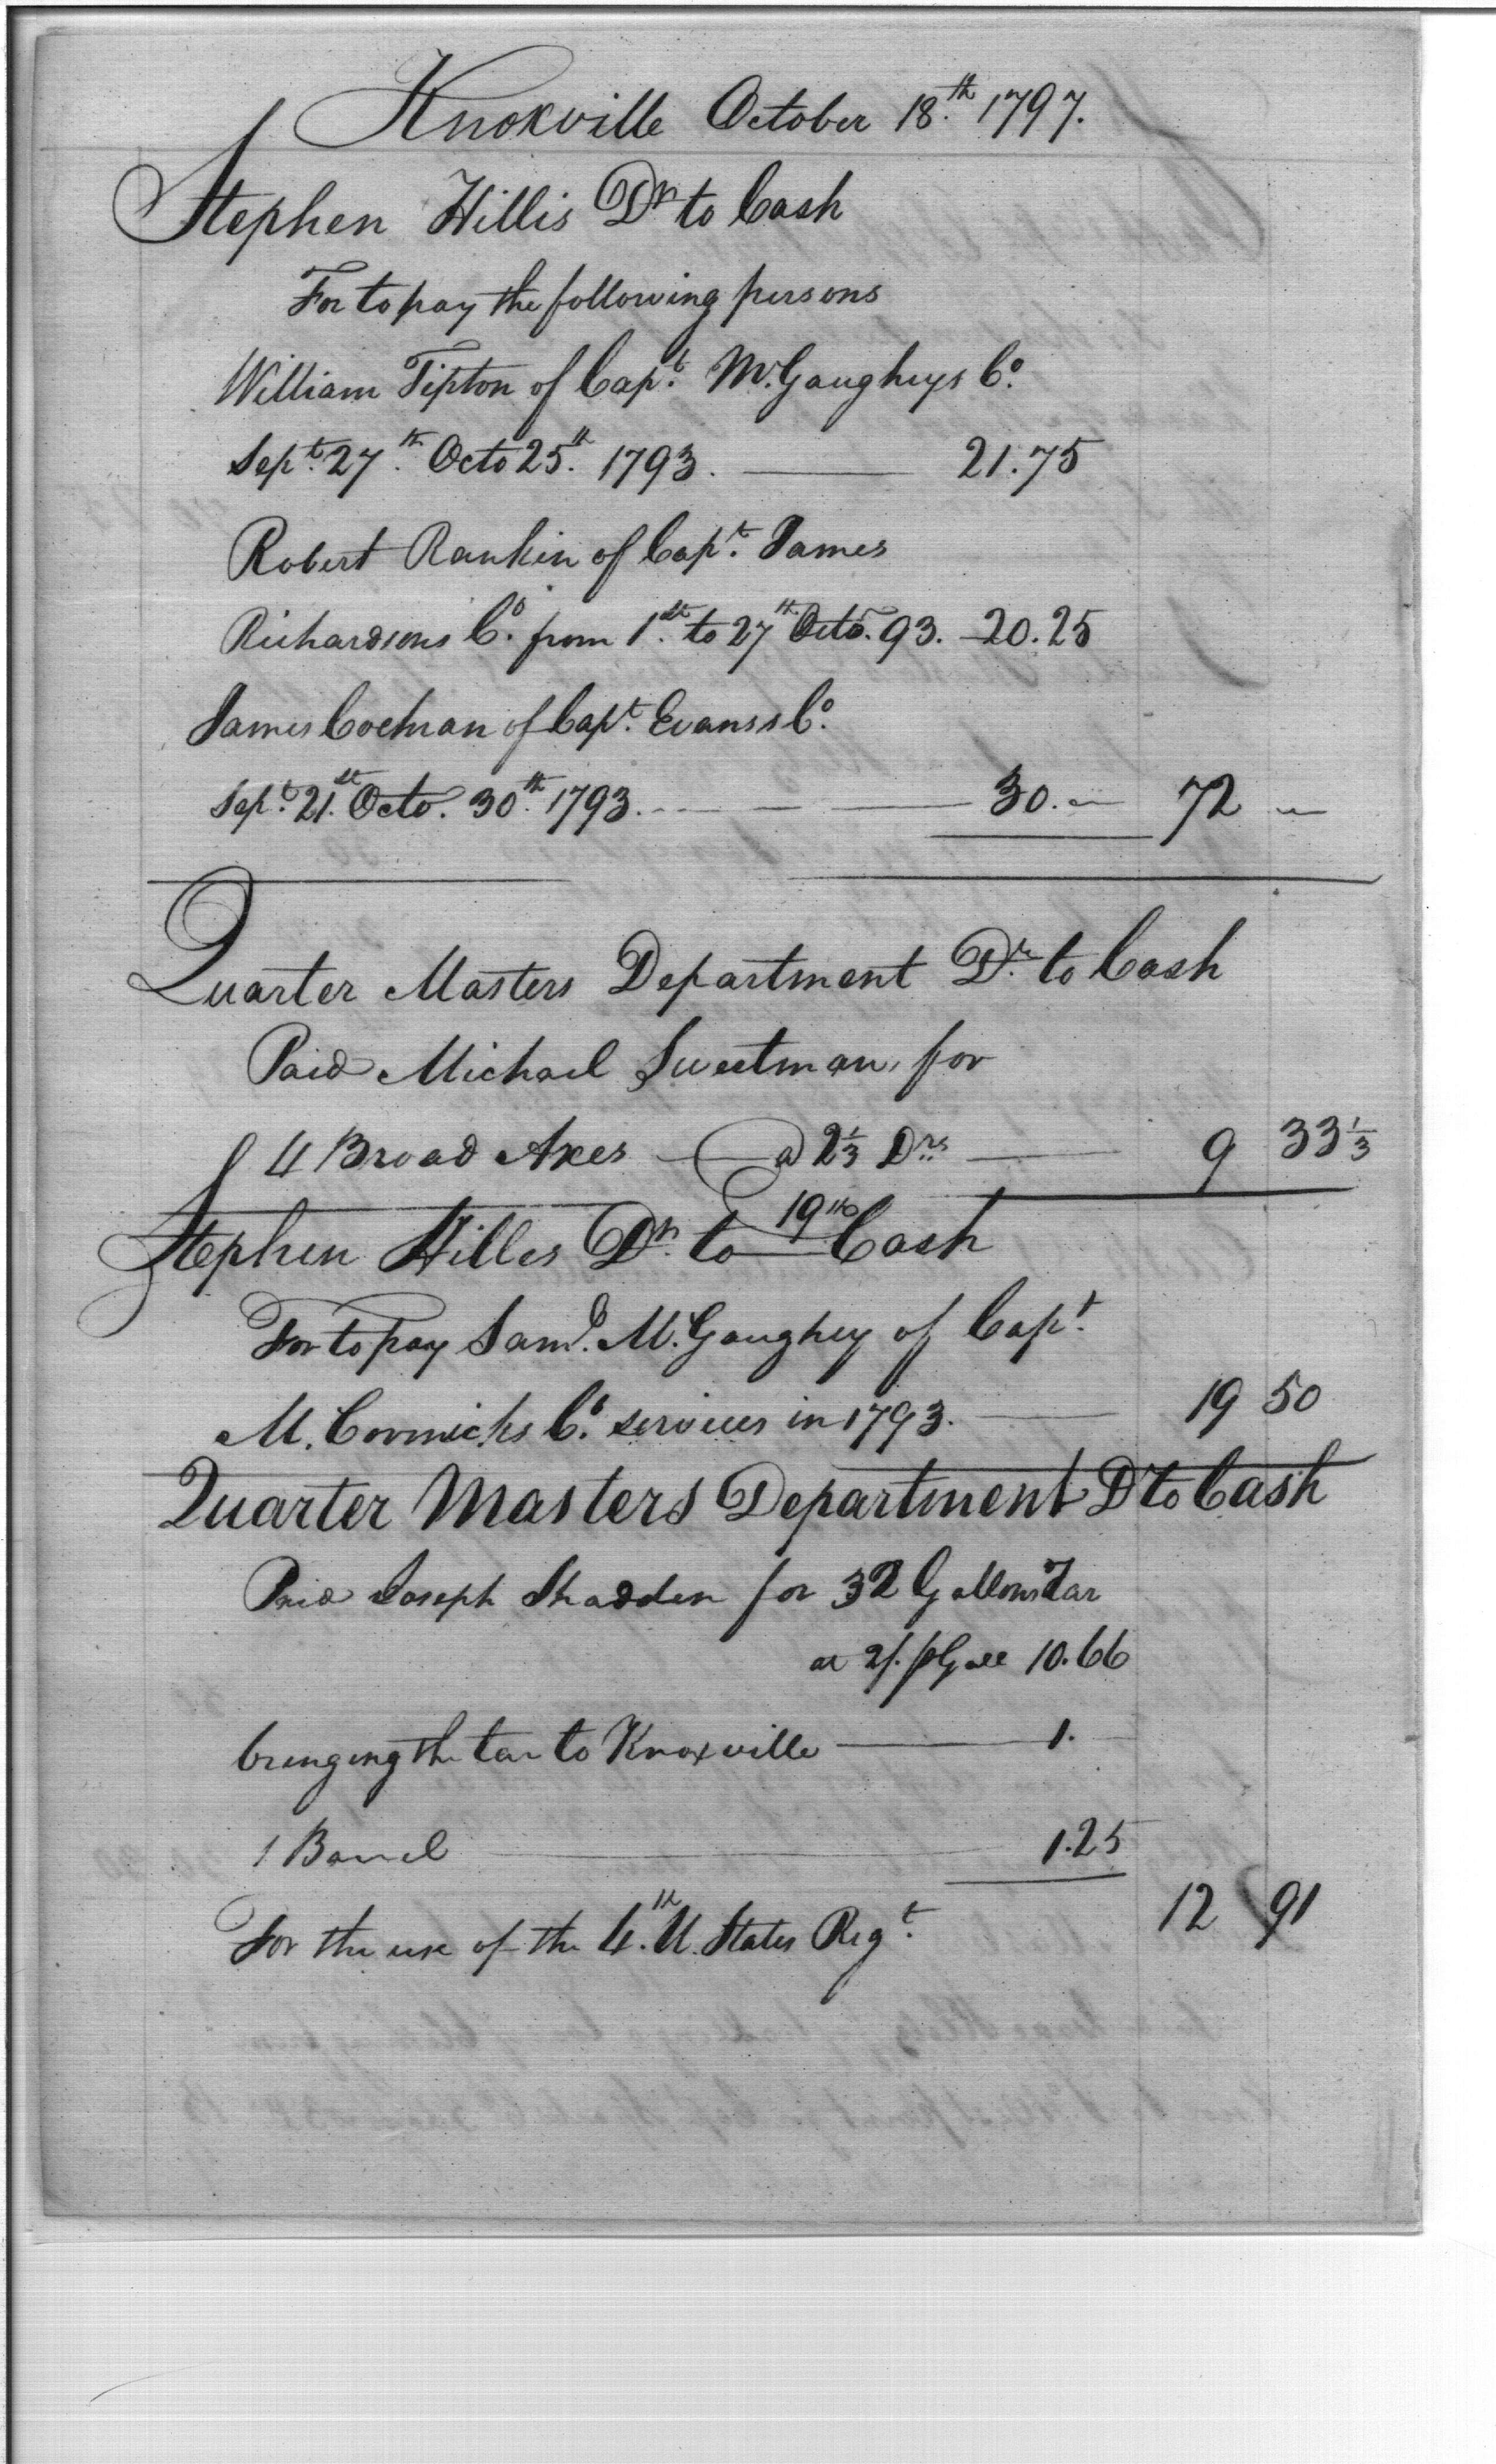 Knoxville October 18.th 1797.
Stephen Hillis Dr to Cash
For to pay the following persons
William Tipton of Capt. McGaugheys Co.
Sept. 27.th Octo 25.th 1793. 21.75
Robert Rankin of Capt. James
Richardsons Co. from 1.st to 27.th Octo. 93. 20.25
James Cochran of Capt. Evans's Co.
Sept. 21.st Octo. 30.th 1793. 30. — 72 —
Quarter Masters Department Dr. to Cash
Paid Michael Sweetman, for
4 Broad Axes @ 2 1/3 Drs. 9 33 1/3
19th
Stephen Hilles Dr. to Cash
For to pay Saml. McGaughey of Capt.
M.Cormicks Co. services in 1793. 19 50
Quarter Masters Department Dr to Cash
Paid Joseph Shadden for 32 Gallons Tar
at 2/. p Gall 10.66
bringing the tar to Knoxville 1.
1 Barrel 1.25
For the use of the 4.th U. States Regt. 12 91